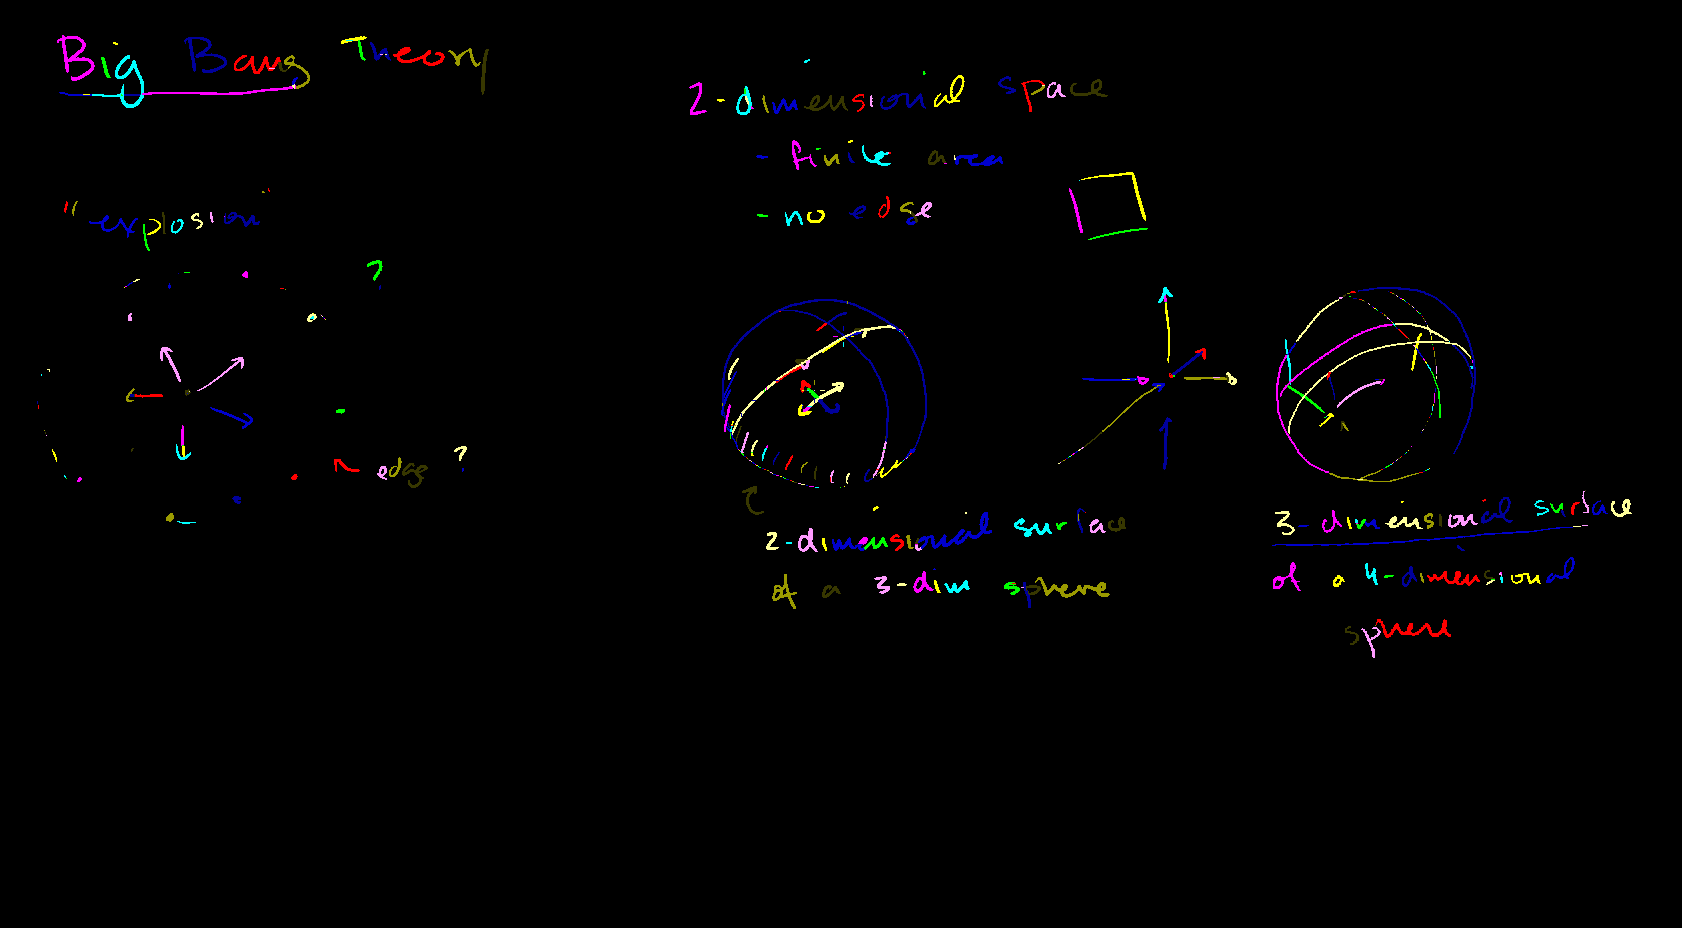 Big Bang Theory
"explosion"
?
edge ?
2-dimensional space
- finite area
- no edge
2-dimensional surface
of a 3-dim sphere
3-dimensional surface
of a 4-dimensional
sphere